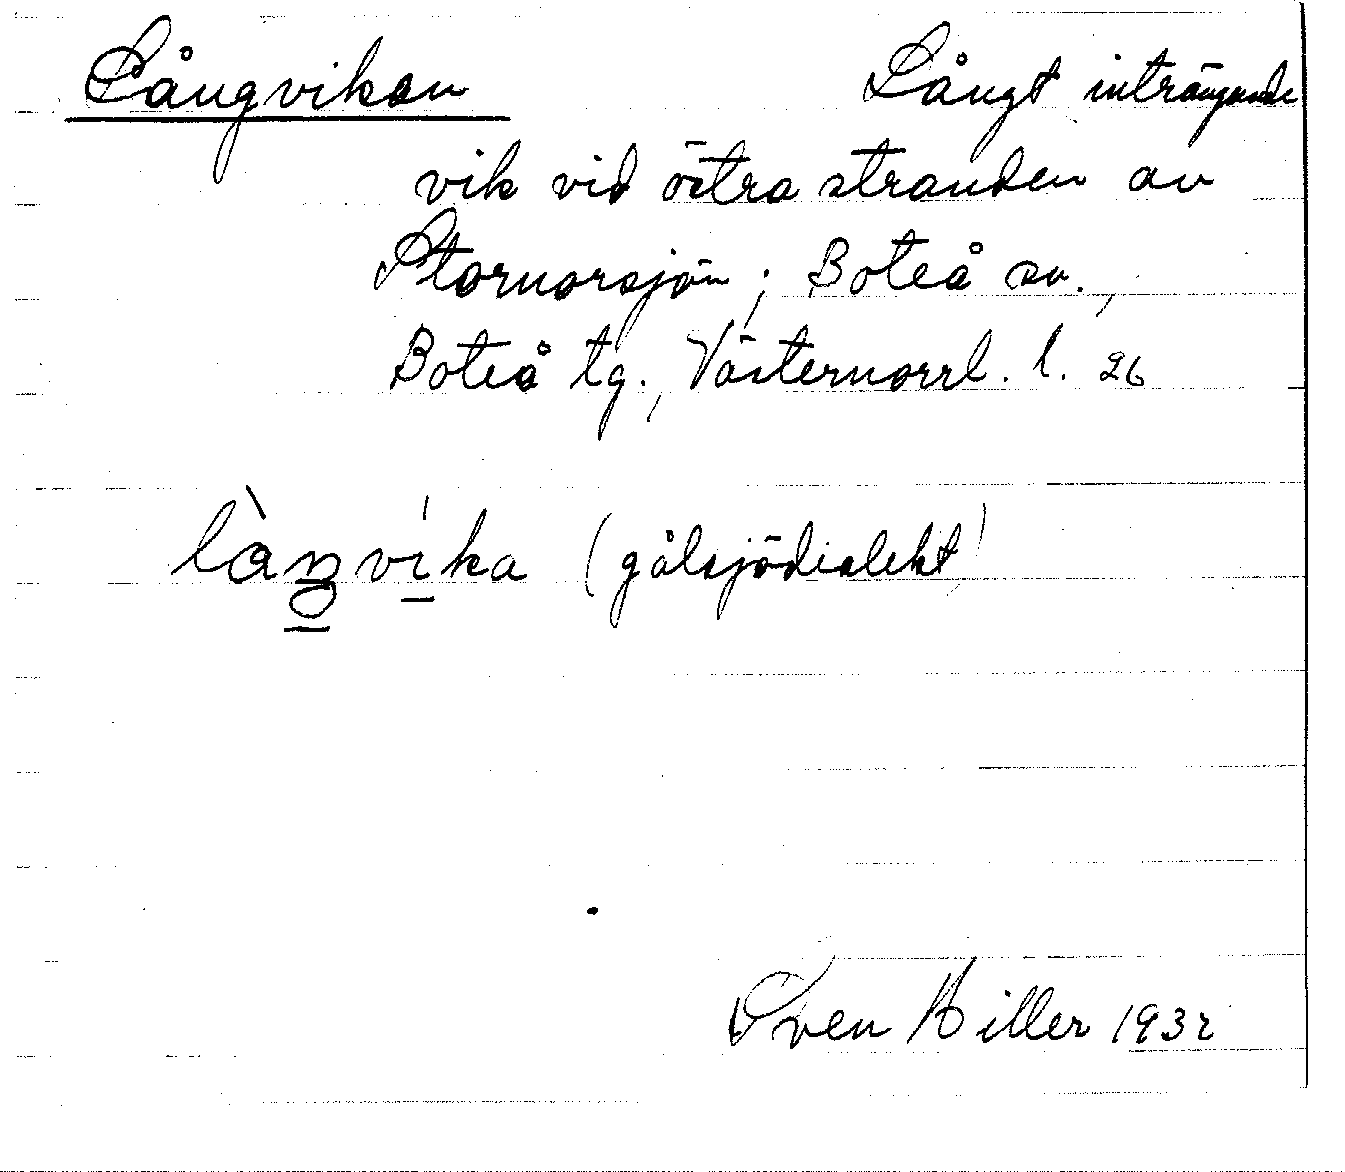 Långvikan Långt inträngande
vik vid östra stranden av
Stornorsjön; Boteå sn.,
Boteå tg., Västernorrl. l. 26
làŋvíka (gålsjödialekt)
Sven Hiller 1932